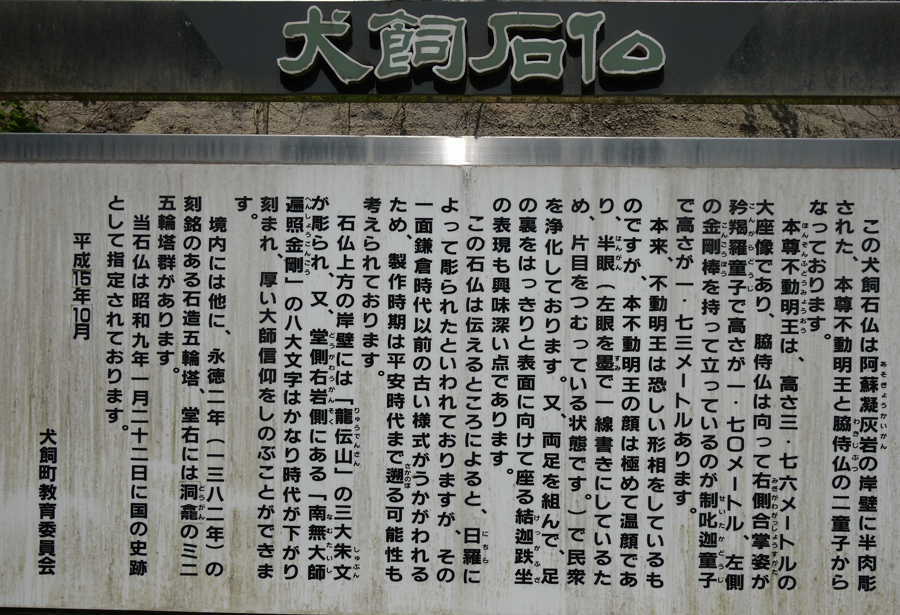 犬飼石仏
この犬飼石仏は阿蘇凝灰岩の岸壁に半肉彫
された、本尊不動明王と脇侍仏の二童子から
なっております。
本尊不動明王は、高さ三・七六メートルの
大座像であり、脇侍仏は向って右側合掌姿が
矜羯羅童子で高さが一・七〇メートル、左側
の金剛棒を持って立っているのが制叱迦童子
で高さが一・七三メートルあります。
本来、不動明王は恐しい形相をしているも
のですが、本不動明王の顔は極めて温顔であ
り、半眼（左眼を墨で一線書きにしているた
め、片目をつむっている状態です。）で民衆
を浄化しております。又、両足を組んで、足
の裏をはっきりと表面に向けて座る結迦趺坐
の表現も興味深い点であります。
この石仏は伝えるところによると、日羅に
よって彫られたといわれておりますが、その
一面鎌倉時代以前の古い様式がうかがわれる
ため、製作時期は平安時代まで遡る可能性も
考えられております。
石仏上方の岸壁には「龍伝山」の三大朱文
が彫られ、又、堂側右岩側にある「南無大師
遍照金剛」の八大文字はかなり時代が下がり
刻まれ、厚い大師信仰をしのぶことができま
す。
境内には他に、永徳二年（一三八二年）の
刻銘のある石造五輪塔、堂右には洞龕のミニ
五輪塔群があります。
当石仏は昭和九年一月二十二日に国の史跡
として指定されております。
平成15年10月
犬飼町教育委員会